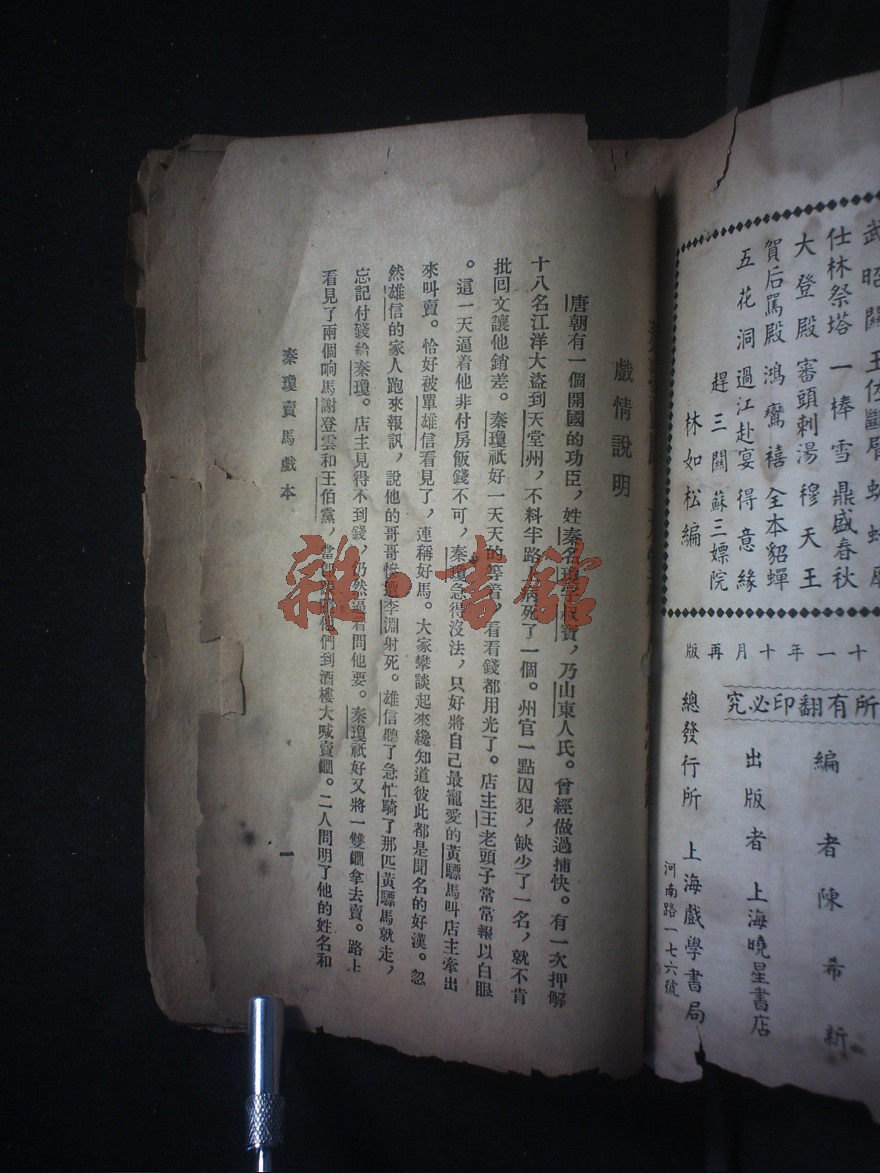 五花洞 過江赴宴 得意緣
賀后罵殿 鴻鸞禧 全本貂蟬
大登殿 審頭刺湯 穆天王
仕林祭塔 一棒雪 鼎盛春秋
趕三關 蘇三嫖院
林如松編
十一年十月再版
所有翻印必究
編者陳希新
出版者 上海曉星書店
總發行所 上海戲學書局
河南路一七六號
戲情說明
唐朝有一個開國的功臣，姓秦名瓊字叔寶，乃山東人氏。曾經做過捕快。有一次押解
十八名江洋大盜到天堂州，不料半路上病死了一個。州官一點囚犯，缺少了一名，就不肯
批回文讓他銷差。秦瓊祇好一天天的等着，看看錢都用光了。店主王老頭子常常報以白眼
。這一天逼着他非付房飯錢不可，秦瓊急得沒法，只好將自己最寵愛的黃驃馬叫店主牽出
來叫賣。恰好被單雄信看見了，連稱好馬。大家攀談起來纔知道彼此都是聞名的好漢。忽
然雄信的家人跑來報訊，說他的哥哥慘遭李淵射死。雄信聽了急忙騎了那匹黃驃馬就走，
忘記付錢給秦瓊。店主見得不到錢，仍然逼着問他要。秦瓊祇好又將一雙鐧拿去賣。路上
看見了兩個响馬謝登雲和王伯黨，當他們到酒樓大喊賣鐧。二人問明了他的姓名和
秦瓊賣馬戲本
一
雜·書館